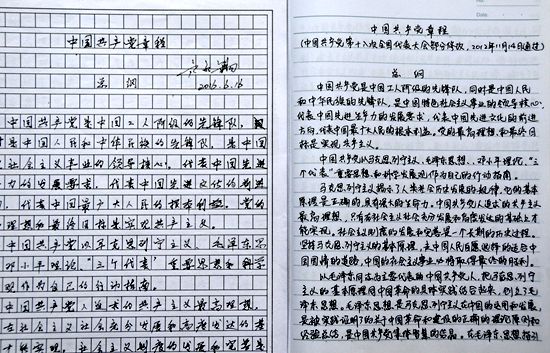 中国共产党章程
总 纲
2016.3.16
中国共产党是中国工人阶级的先锋队,
是中国人民和中华民族的先锋队,是中国
社会主义事业的领导核心,代表中国先进
发展要求,代表中国先进文化的前进
代表中国最广大人民的根本利益。党
理想和最终目标是实现共产主义。
中国共产党以马克思列宁主义、毛泽东思
邓小平理论、"三个代表"重要思想和科学
观作为自己的行动指南。
中国共产党人追求的共产主义最高理想,
在社会主义社会充分发展和高度发达的基
实现。社会主义制度的发展和完善是
Date
中国共产党章程
(中国共产党第十八次全国代表大会部分修改,2012年11月14日通过)
总 纲
中国共产党是中国工人阶级的先锋队,同时是中国人民
和中华民族的先锋队,是中国特色社会主义事业的领导核心,
代表中国先进生产力的发展要求,代表中国先进文化的前进
方向,代表中国最广大人民的根本利益。党的最高理想和最终目
标是实现共产主义。
中国共产党以马克思列宁主义、毛泽东思想、邓小平理论、"三
个代表"重要思想和科学发展观作为自己的行动指南。
马克思列宁主义揭示了人类社会历史发展的规律,它的基本
原理是正确的,具有强大的生命力。中国共产党人追求的共产主义
最高理想,只有在社会主义社会充分发展和高度发达的基础上才
能实现。社会主义制度的发展和完善是一个长期的历史过程。
坚持马克思列宁主义的基本原理,走中国人民自愿选择的适合中
国国情的道路,中国的社会主义事业必将取得最终的胜利。
以毛泽东同志为主要代表的中国共产党人,把马克思列宁
主义的基本原理同中国革命的具体实践结合起来,创立了毛
泽东思想。毛泽东思想是马克思列宁主义在中国的运用和发展,
是被实践证明了的关于中国革命和建设的正确的理论原则和
经验总结,是中国共产党集体智慧的结晶。在毛泽东思想指引